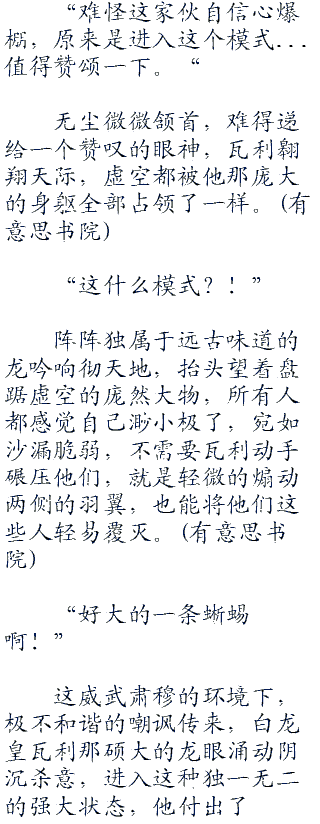 “难怪这家伙自信心爆
棚，原来是进入这个模式...
值得赞颂一下。“
无尘微微颔首，难得递
给一个赞叹的眼神，瓦利翱
翔天际，虚空都被他那庞大
的身躯全部占领了一样。(有
意思书院)
“这什么模式？！”
阵阵独属于远古味道的
龙吟响彻天地，抬头望着盘
踞虚空的庞然大物，所有人
都感觉自己渺小极了，宛如
沙漏脆弱，不需要瓦利动手
碾压他们，就是轻微的煽动
两侧的羽翼，也能将他们这
些人轻易覆灭。(有意思书
院)
“好大的一条蜥蜴
啊！”
这威武肃穆的环境下，
极不和谐的嘲讽传来，白龙
皇瓦利那硕大的龙眼涌动阴
沉杀意，进入这种独一无二
的强大状态，他付出了